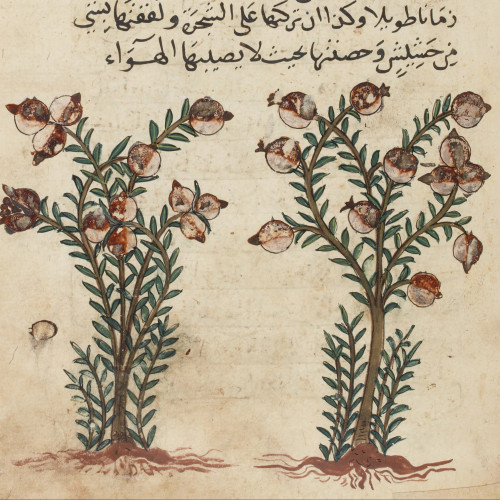 زمانا طويلا وكذا ان تركتها على الشجرة ولففتها بشئ
من حشيش وحصنتها بحيث لا يصيبها الهواء